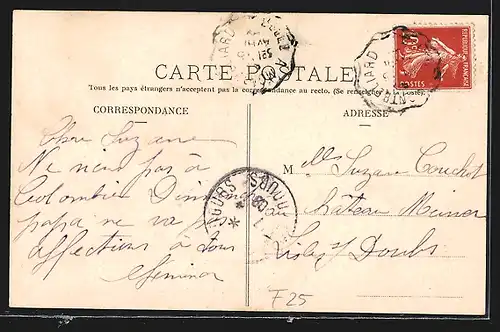 CARTE POSTALE
Tous les pays étrangers n'acceptent pas la correspondance au recto. (Se renseigner à la poste).
CORRESPONDANCE
ADRESSE
Chère Suzanne
Ne viens pas à
Colombier Dimanche
papa ne va pas
affections à tous
Mlle Suzanne Couchot
au Château Meiner
L'Isle s/ Doubs
F25
REPUBLIQUE FRANÇAISE
POSTES